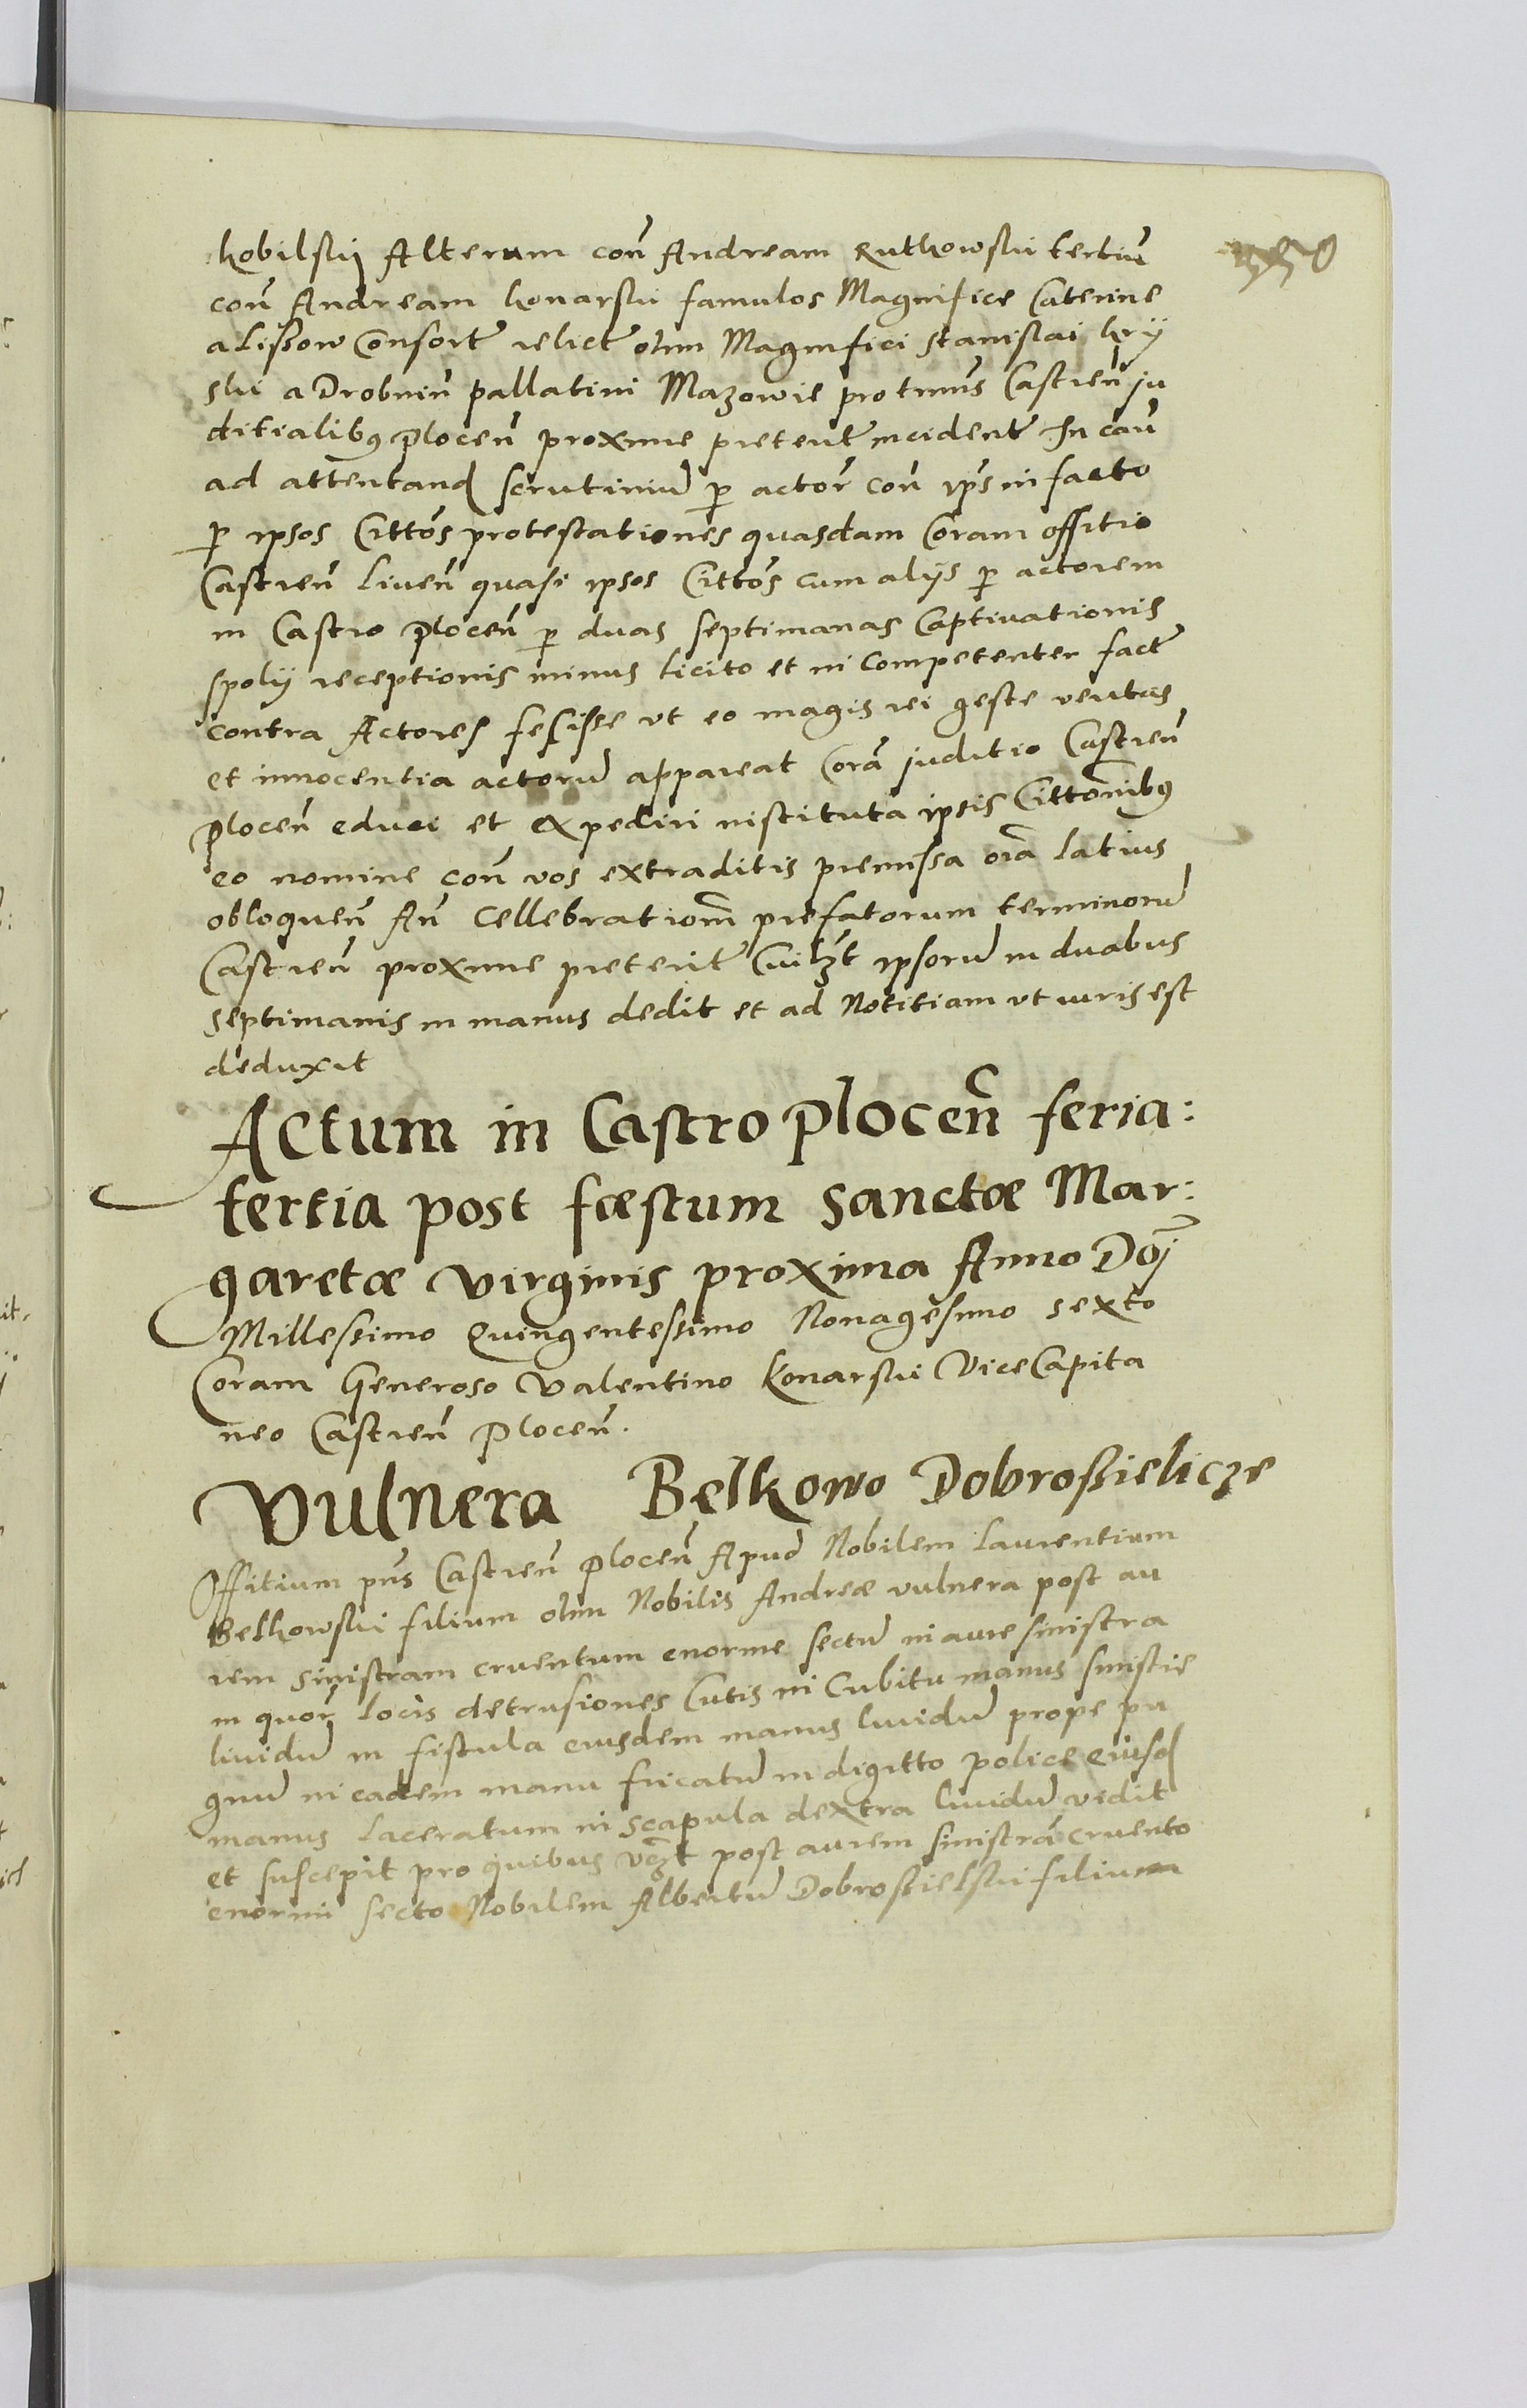 kobilskij Alterum con̄ Andream Rutkowski tertiū
con̄ Andream konarski famulos Magnifice Caterine
a Lissow Consort̄ relict̄ olim Magnifici Stanislai kry
ski a Drobnin̄ pallatini Mazowie pro tmn̄s Castren̄ ju
ditialibus plocen̄ proxime preterit̄ incident̄ In cau̅
ad attentand̄ scrutiniū p̱ actor̄ con̄ ip̄s in facto
p̱ ipsos Citto̅s protestationes quasdam Coram offitio
Castren̄ Liuen̄ quasi ipsos Citto̅s cum alijs p̱ actorem
in Castro plocen̄ p̱ duas septimanas Captiuationis
spolij receptionis minus licito et in competenter fact̄
contra Actores fecisse vt eo magis rei geste veritas
et innocentia actorū appareat Corā juditio Castren̄
plocen̄ educi et expediri instituta ipsis Cittōnibus
eo nomine con̄ vos extraditis premissa oīa latius
obloquen̄ An̄ Cellebrationē prefatorum terminorū
Castren̄ proxime preterit̄ Cuilz̄t ipsorū in duabus
septimanis in manus dedit et ad Notitiam vt iuris est
deduxit
Actum in Castro plocen̄ feria:
tertia post fæstum Sanctæ Mar:
garetæ virginis proxima Anno Doj̄
Millessimo Quingentessimo Nonagesimo sexto
Coram Generoso Valentino Konarski ViceCapita
neo Castren̄ Plocen̄.
Vulnera Belkowo Dobrossielicze
Offitium pn̄s Castren̄ Plocen̄ Apud Nobilem Laurentium
Belkowski filium olim Nobilis Andreæ vulnera post au
rem sinistram cruentum enorme sectū in aure sinistra
in quor̄ locis detrusiones Cutis in Cubitu manus sinistre
liuidū in fistula eiusdem manus liuidū prope pu
gnū in eadem manu fricatū in digitto police eiusd̄
manus laceratum in scapula dextra liuidū vidit
et suscepit pro quibus vz̄t post aurem sinistrā cruento
enormi secto Nobilem Albertū Dobrossielski filium